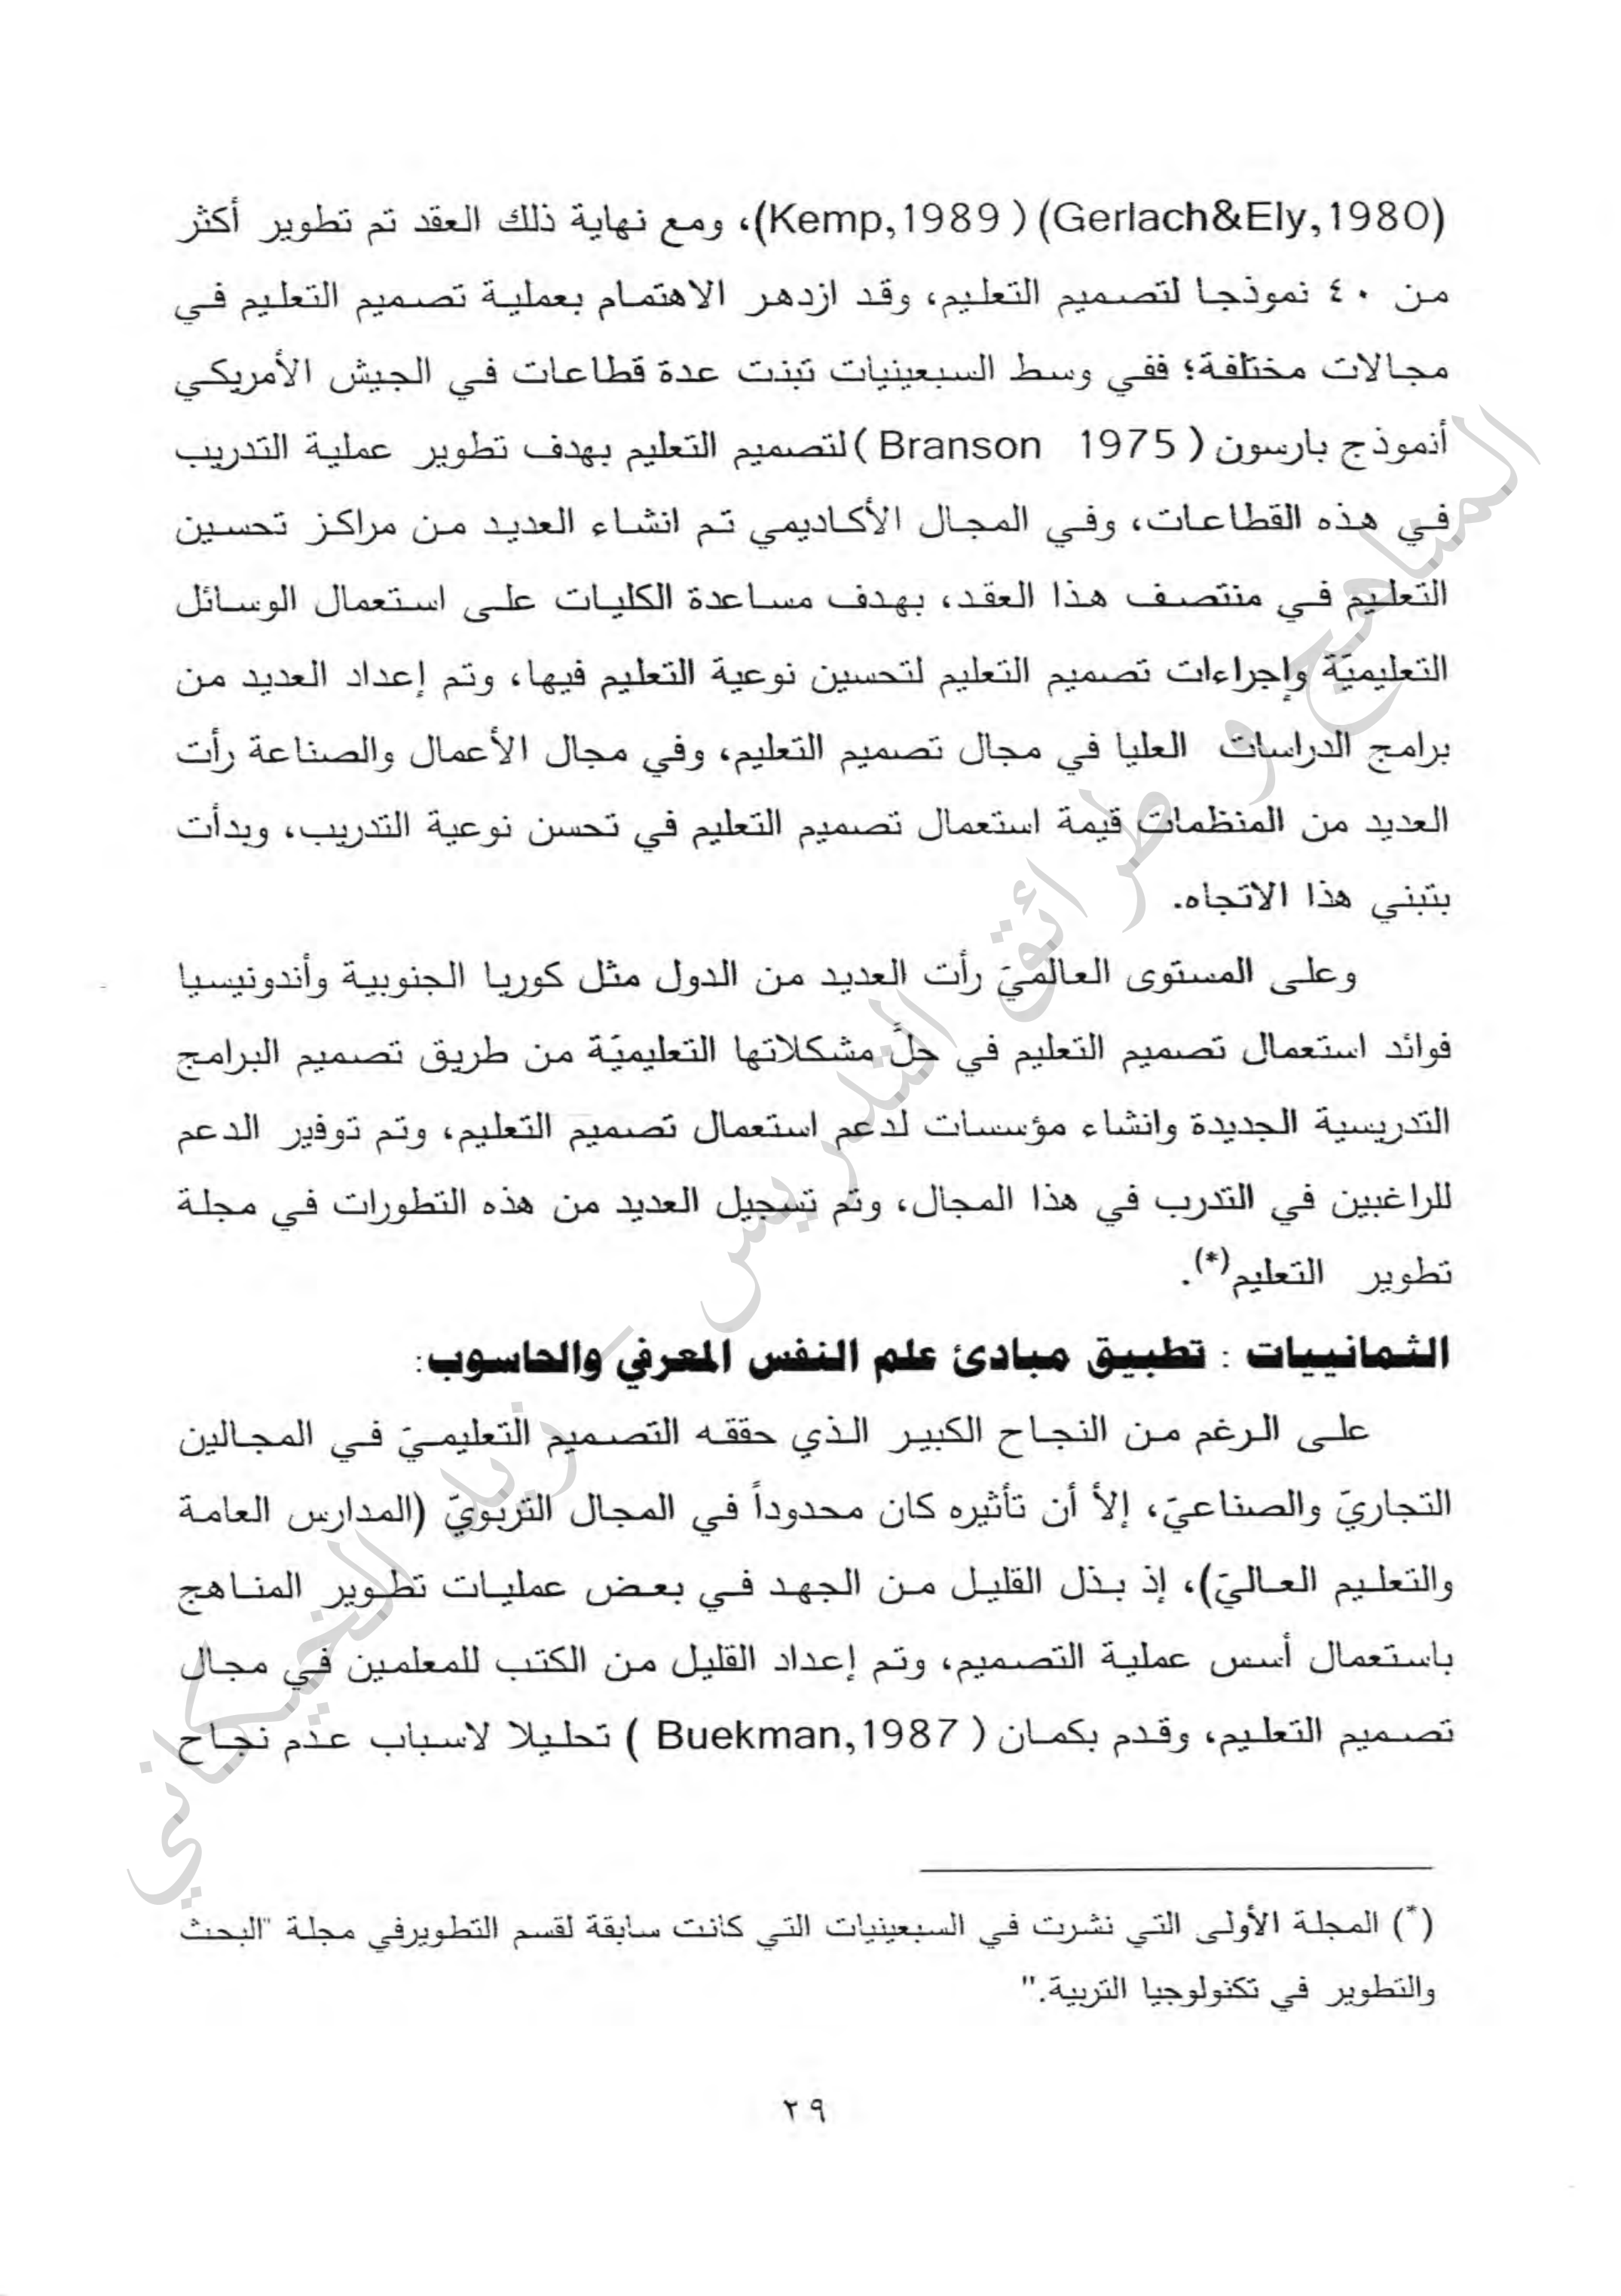 (Gerlach&Ely,1980) (Kemp,1989 )، ومع نهاية ذلك العقد تم تطوير أكثر
من ٤٠ نموذجا لتصميم التعليم، وقد ازدهر الاهتمام بعملية تصميم التعليم في
مجالات مختلفة؛ ففي وسط السبعينيات تبنت عدة قطاعات في الجيش الأمريكي
أنموذج بارسون ( Branson 1975 )لتصميم التعليم بهدف تطوير عملية التدريب
في هذه القطاعات، وفي المجال الأكاديمي تم انشاء العديد من مراكز تحسين
التعليم في منتصف هذا العقد، بهدف مساعدة الكليات على استعمال الوسائل
التعليميّة وإجراءات تصميم التعليم لتحسين نوعية التعليم فيها، وتم إعداد العديد من
برامج الدراسات العليا في مجال تصميم التعليم، وفي مجال الأعمال والصناعة رأت
العديد من المنظمات قيمة استعمال تصميم التعليم في تحسن نوعية التدريب، وبدأت
بتبني هذا الاتجاه.
وعلى المستوى العالميّ رأت العديد من الدول مثل كوريا الجنوبية وأندونيسيا
فوائد استعمال تصميم التعليم في حلَّ مشكلاتها التعليميّة من طريق تصميم البرامج
التدريسية الجديدة وانشاء مؤسسات لدعم استعمال تصميم التعليم، وتم توفير الدعم
للراغبين في التدرب في هذا المجال، وتم تسجيل العديد من هذه التطورات في مجلة
تطوير التعليم(*).
الثمانييات : تطبيق مبادئ علم النفس المعرفي والحاسوب:
على الرغم من النجاح الكبير الذي حققه التصميم التعليميّ في المجالين
التجاريّ والصناعيّ، إلأ أن تأثيره كان محدوداً في المجال التربويّ (المدارس العامة
والتعليم العاليّ)، إذ بذل القليل من الجهد في بعض عمليات تطوير المناهج
باستعمال أسس عملية التصميم، وتم إعداد القليل من الكتب للمعلمين في مجال
تصميم التعليم، وقدم بكمان ( Buekman,1987 ) تحليلا لاسباب عدم نجاح
(*) المجلة الأولى التي نشرت في السبعينيات التي كانت سابقة لقسم التطويرفي مجلة "البحث
والتطوير في تكنولوجيا التربية."
٢٩
المناهج و طرائق التدريس – زياد الخيكاني